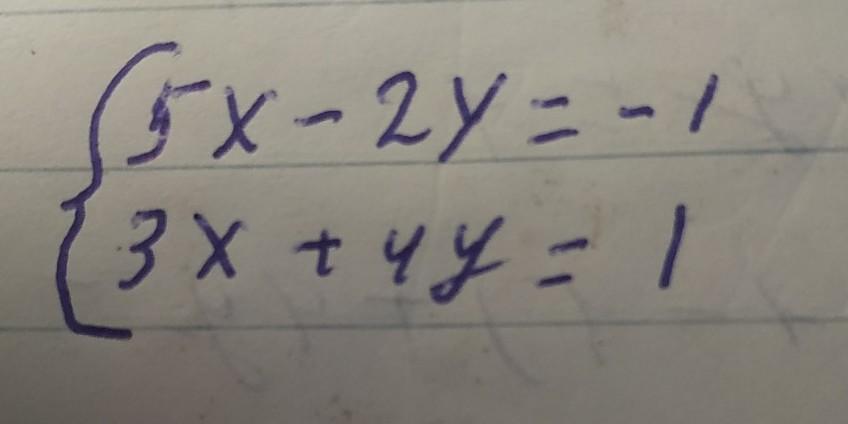 5x - 2y = - 1
3x + 4y = 1